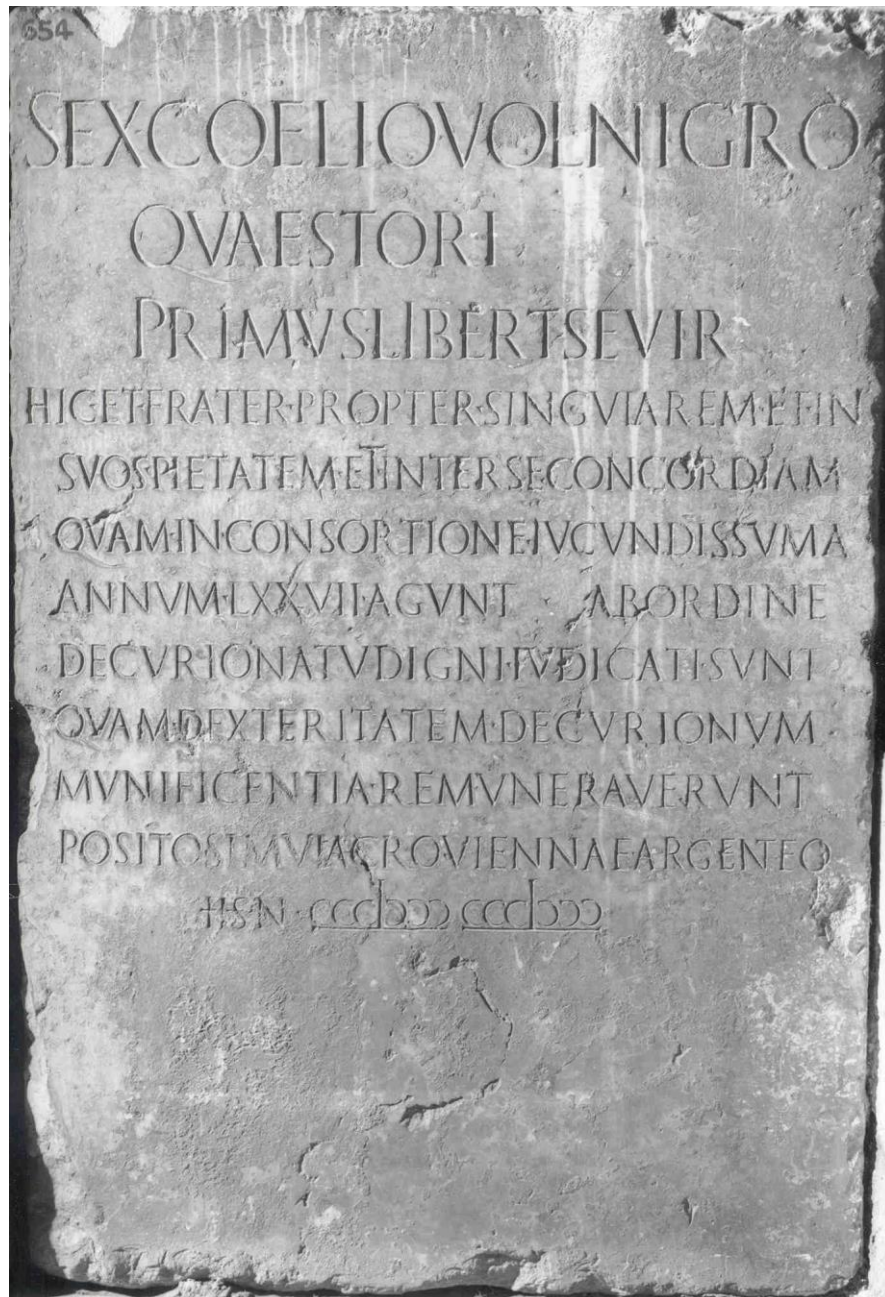 654
SEX·COELIO·VOL·NIGRO
QVAESTORI
PRIMVS·LIBERT·SEVIR
HIC·ET·FRATER·PROPTER·SINGVLAREM·ET·IN
SVOS·PIETATEM·ET·INTER SE·CONCORDIAM
QVAM·IN·CONSORTIONE·IVCVNDISSVMA
ANNVM·LXXVII·AGVNT AB·ORDINE
DECVRIONATV·DIGNI·IVDICATI·SVNT
QVAM·DEXTERITATEM·DECVRIONVM
MVNIFICENTIA·REMVNERAVERVNT
POSITO·SIMVLACRO·VIENNAE·ARGENTEO
HS·N· ccclↄↄↄ ccclↄↄↄ